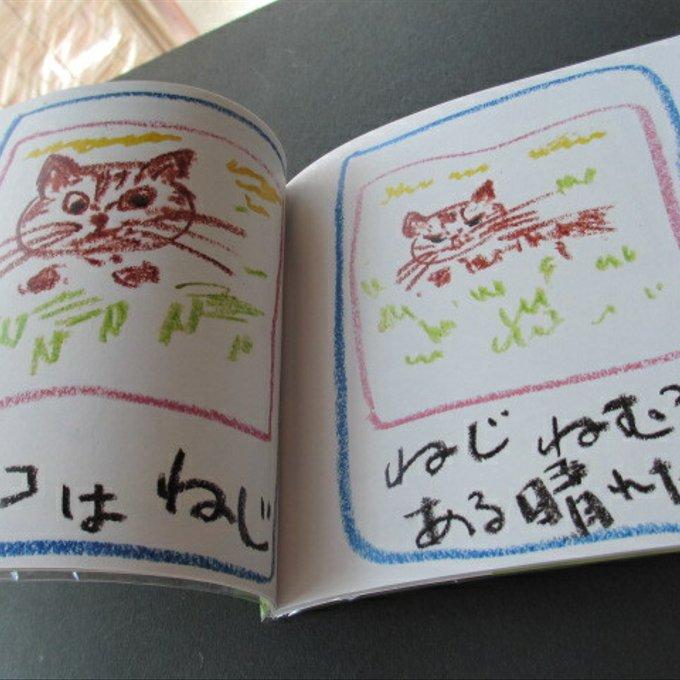 コは ねじ
ねじ ねむ
ある晴れた